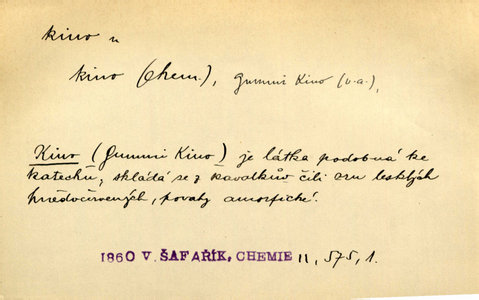 kino n
kino (chem.), gummi Kino (v. a.),
Kino (Gummi Kino) je látka podobná ke
katechu, skládá se z kavalkův čili zrn lesklých
hnědočervených, povahy amorfické.
1860 V. ŠAFAŘÍK, CHEMIE II, 575, 1.